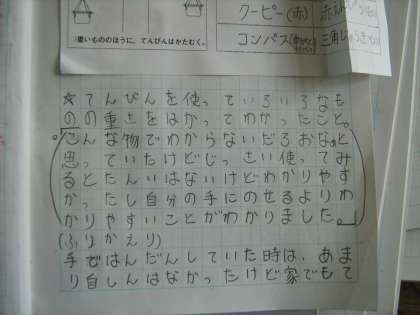 重いもののほうに、てんびんはかたむく。
クーピー(赤)
コンパス
☆てんびんを使っていろいろなも
のの重さをはかってわかったこと。
「こんな物でわからないだろおなぁと
思っていたけどじっさい使ってみ
るとたんいはないけどわかりやす
かったし自分の手にのせるよりわ
かりやすいことがわかりました。」
(ふりかえり)
手ではんだんしていた時は、あま
り自しんはなかったけど家でもて